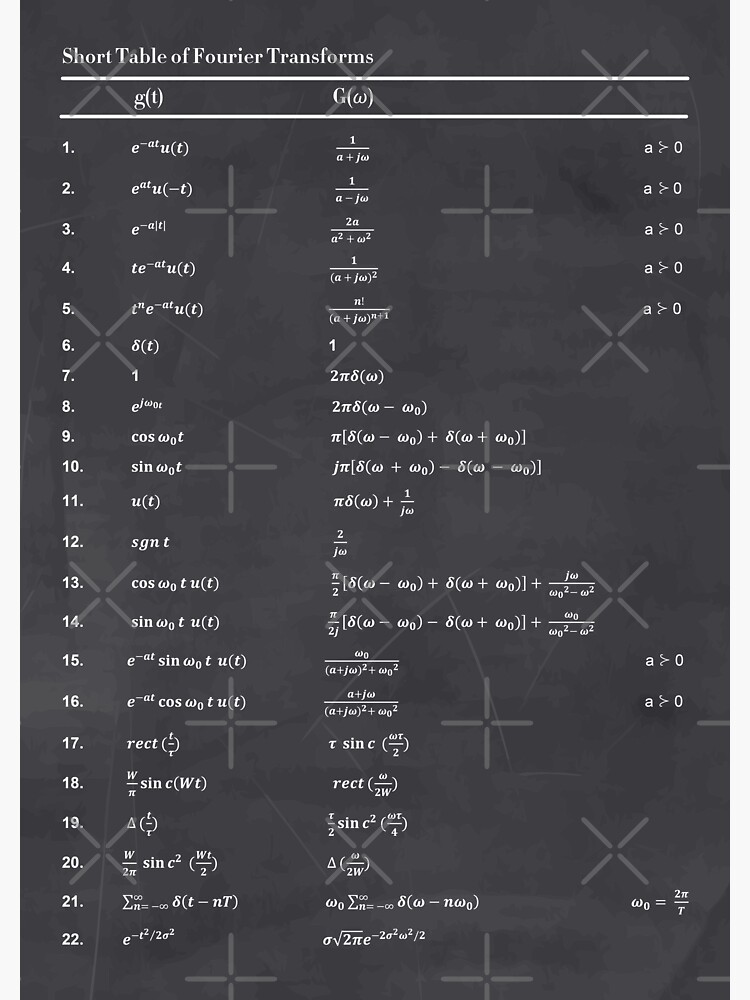 Short Table of Fourier Transforms
g(t) G(ω)
1. e^{−at}u(t) \frac{1}{a + jω} a ≻ 0
2. e^{at}u(−t) \frac{1}{a − jω} a ≻ 0
3. e^{−a|t|} \frac{2a}{a^2 + ω^2} a ≻ 0
4. te^{−at}u(t) \frac{1}{(a + jω)^2} a ≻ 0
5. t^n e^{−at}u(t) \frac{n!}{(a + jω)^{n+1}} a ≻ 0
6. δ(t) 1
7. 1 2πδ(ω)
8. e^{jω_0t} 2πδ(ω − ω_0)
9. cos ω_0t π[δ(ω − ω_0) + δ(ω + ω_0)]
10. sin ω_0t jπ[δ(ω + ω_0) − δ(ω − ω_0)]
11. u(t) πδ(ω) + \frac{1}{jω}
12. sgn t \frac{2}{jω}
13. cos ω_0 t u(t) \frac{π}{2}[δ(ω − ω_0) + δ(ω + ω_0)] + \frac{jω}{ω_0^2 − ω^2}
14. sin ω_0 t u(t) \frac{π}{2j}[δ(ω − ω_0) − δ(ω + ω_0)] + \frac{ω_0}{ω_0^2 − ω^2}
15. e^{−at} sin ω_0 t u(t) \frac{ω_0}{(a+jω)^2 + ω_0^2} a ≻ 0
16. e^{−at} cos ω_0 t u(t) \frac{a+jω}{(a+jω)^2 + ω_0^2} a ≻ 0
17. rect (\frac{t}{τ}) τ sin c (\frac{ωτ}{2})
18. \frac{W}{π} sin c(Wt) rect (\frac{ω}{2W})
19. Δ (\frac{t}{τ}) \frac{τ}{2} sin c^2 (\frac{ωτ}{4})
20. \frac{W}{2π} sin c^2 (\frac{Wt}{2}) Δ (\frac{ω}{2W})
21. ∑_{n=−∞}^{∞} δ(t − nT) ω_0 ∑_{n=−∞}^{∞} δ(ω − nω_0) ω_0 = \frac{2π}{T}
22. e^{−t^2/2σ^2} σ√{2π}e^{−2σ^2ω^2/2}